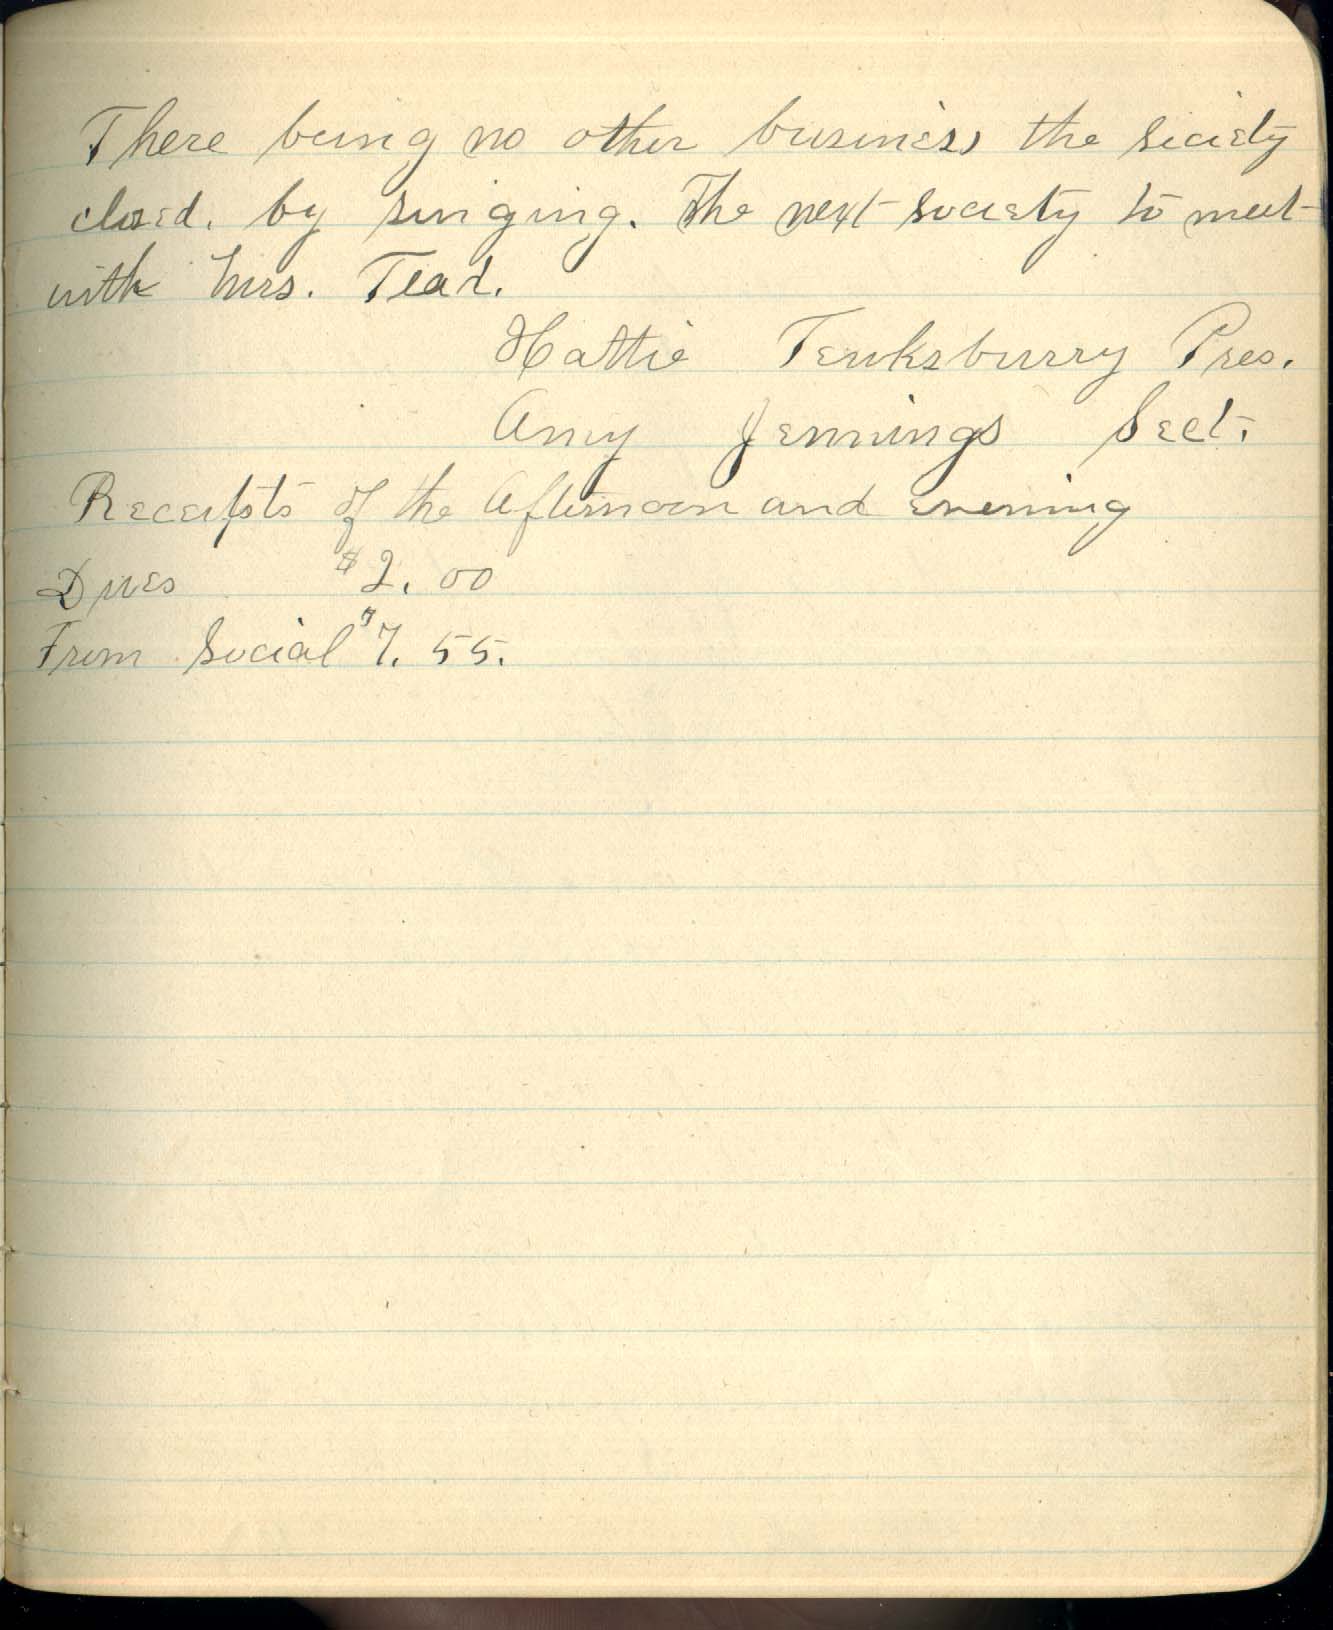 There being no other business the Society
closed. by singing. The next society to meet
with Mrs. Tead.
Hattie Teuksburry Pres.
Amy Jennings Sect.
Receipts of the Afternoon and evening
Dues $2.00
From Social $7.55.